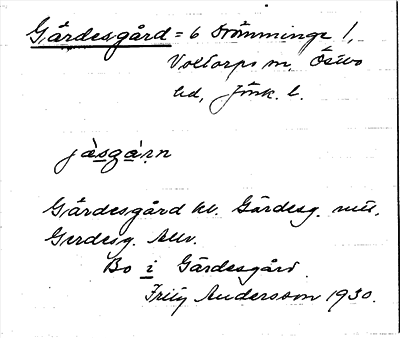 Gärdesgård = 6 Drömminge 1,
Voltorps sn, Östbo
hd, Jönk. l.
jàsgàṛn
Gärdesgård kv. Gärdesg.
Gerdesg. Allv.
Bo i Gärdesgård.
Fritz Andersson 1930.